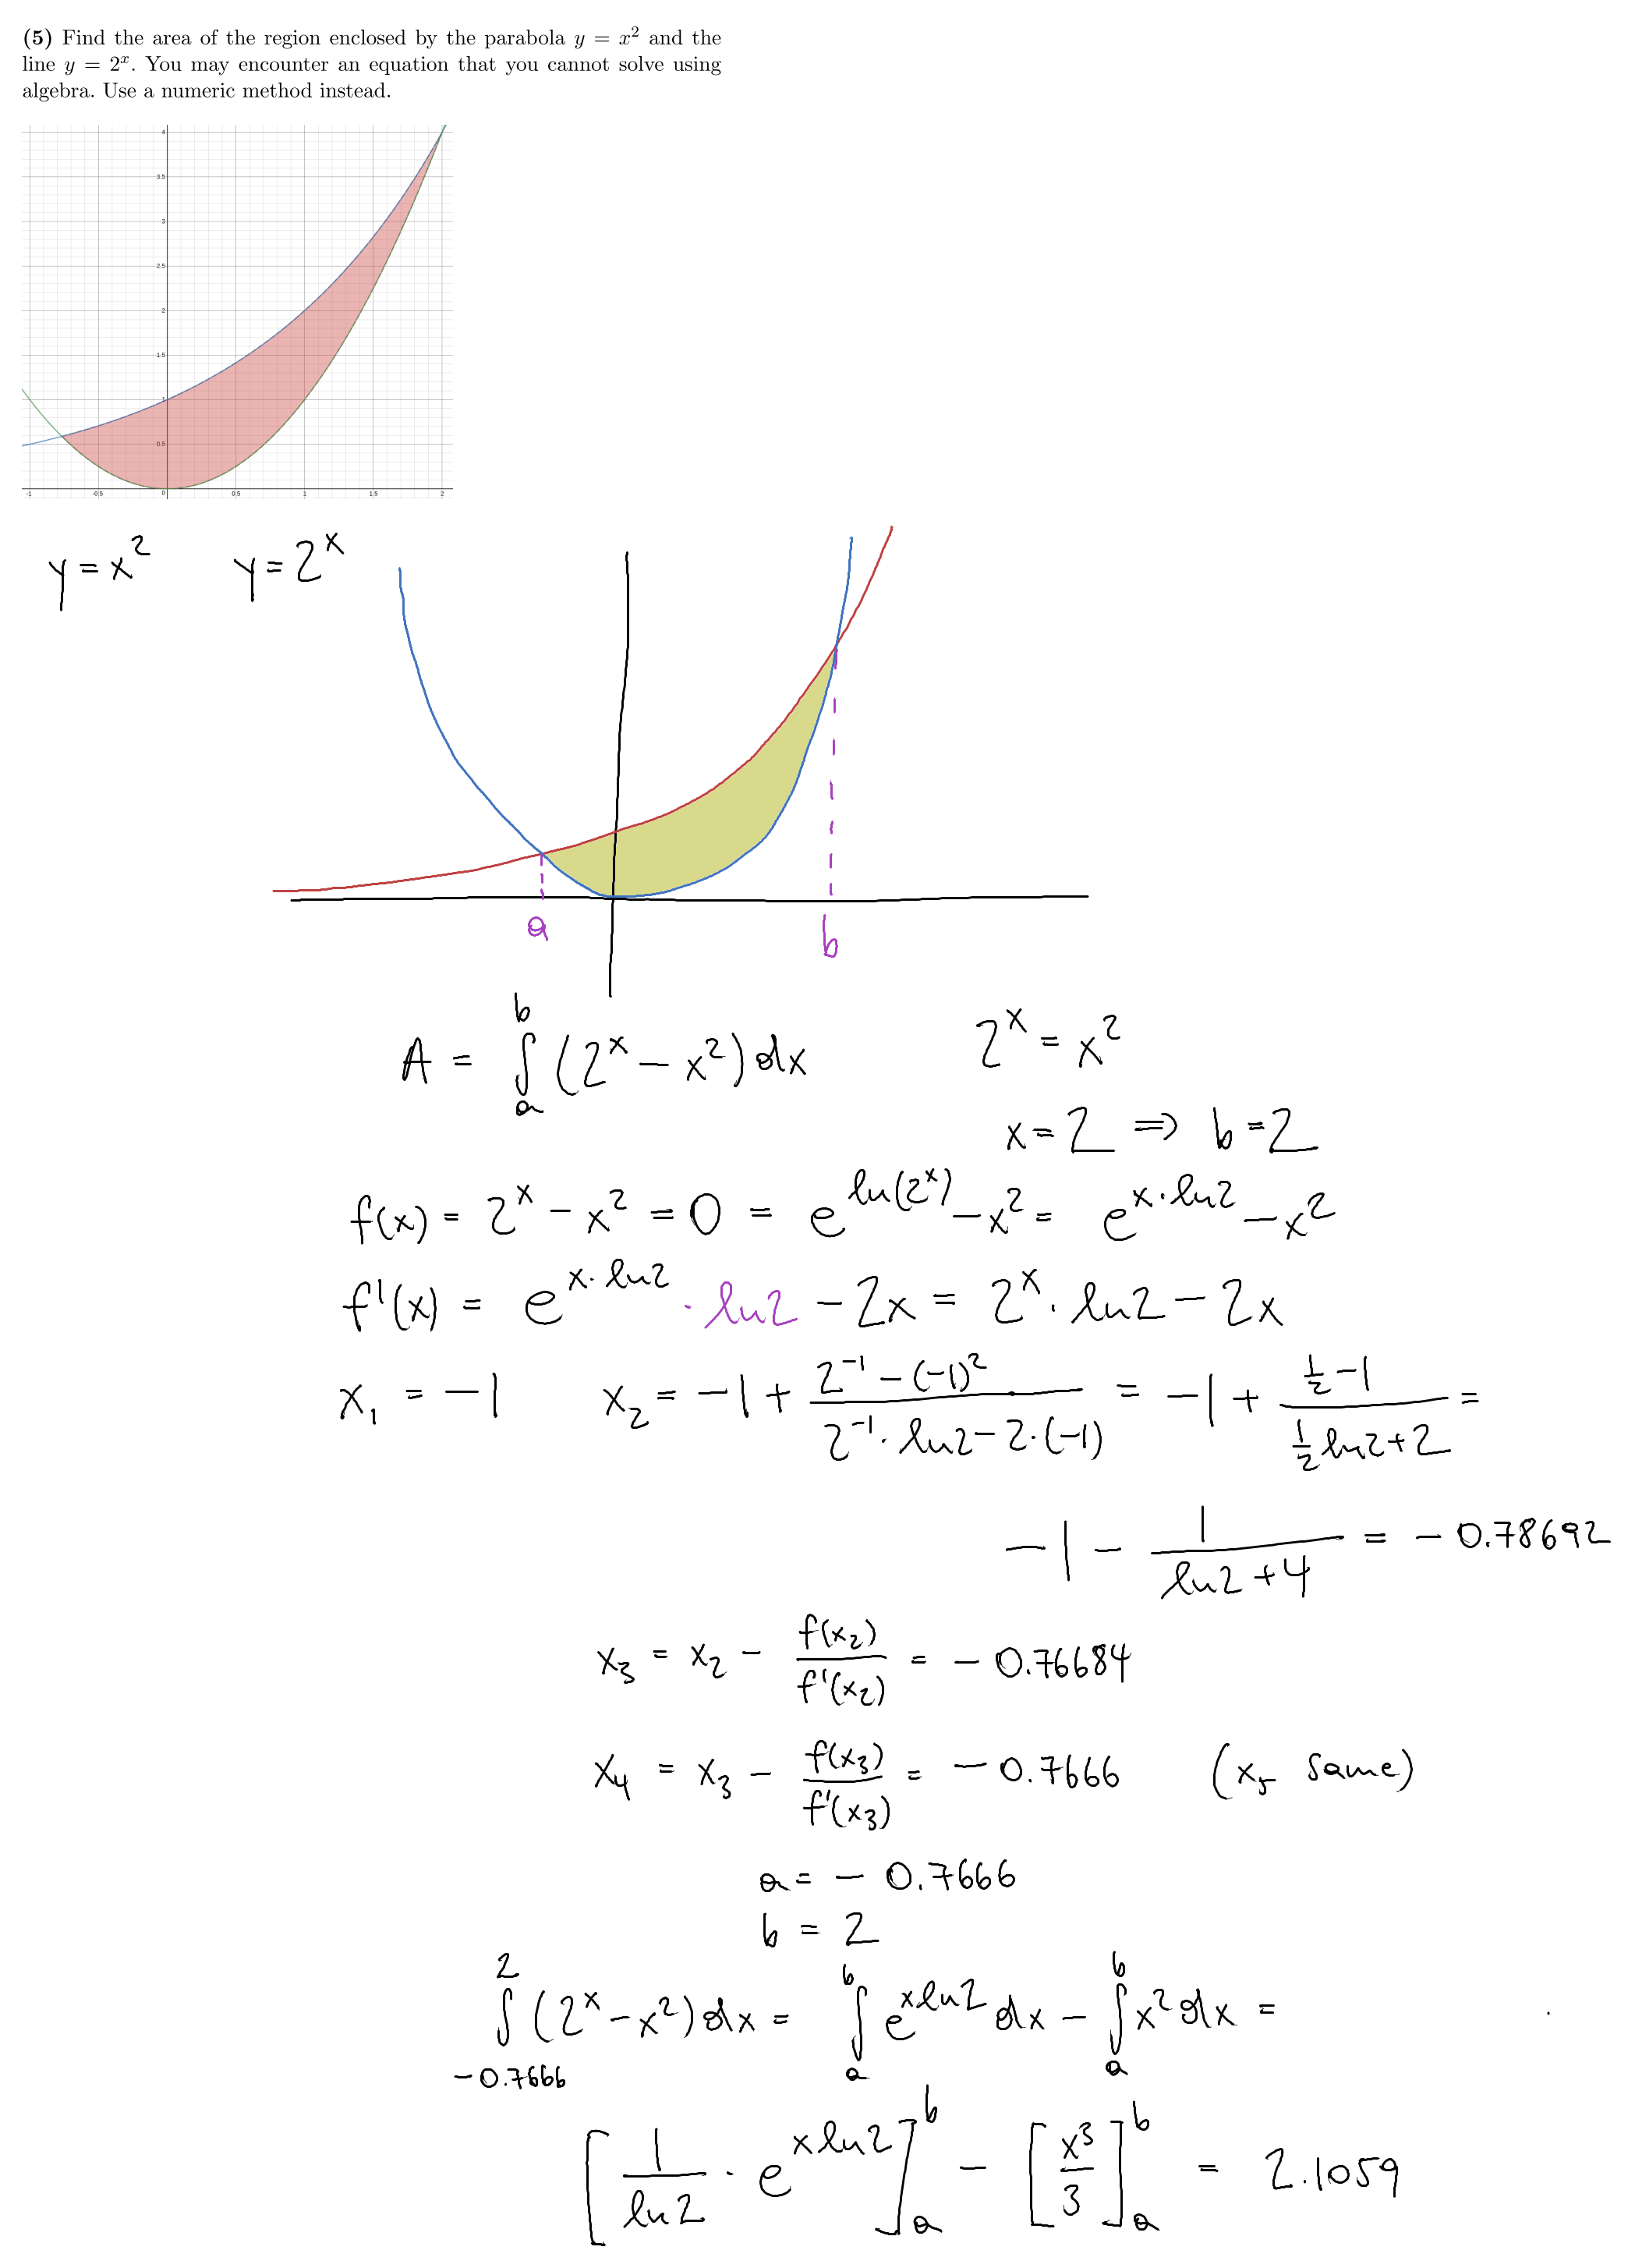 (5) Find the area of the region enclosed by the parabola y = x² and the
line y = 2ˣ. You may encounter an equation that you cannot solve using
algebra. Use a numeric method instead.
4
3.5
3
2.5
2
1.5
1
0.5
-1 -0.5 0 0.5 1 1.5 2
y = x² y = 2ˣ
a b
A = ∫ₐᵇ (2ˣ − x²) dx 2ˣ = x²
x = 2 ⇒ b = 2
f(x) = 2ˣ − x² = 0 = e^(ln(2ˣ)) − x² = e^(x·ln2) − x²
f'(x) = e^(x·ln2) · ln2 − 2x = 2ˣ · ln2 − 2x
x₁ = −1 x₂ = −1 + (2⁻¹ − (−1)²)/(2⁻¹ · ln2 − 2·(−1)) = −1 + (½ − 1)/(½ ln2 + 2) =
−1 − 1/(ln2 + 4) = −0.78692
x₃ = x₂ − f(x₂)/f'(x₂) = −0.76684
x₄ = x₃ − f(x₃)/f'(x₃) = −0.7666 (x₅ same)
a = −0.7666
b = 2
∫_(−0.7666)^2 (2ˣ − x²) dx = ∫ₐᵇ e^(x ln2) dx − ∫ₐᵇ x² dx =
[1/ln2 · e^(x ln2)]ₐᵇ − [x³/3]ₐᵇ = 2.1059